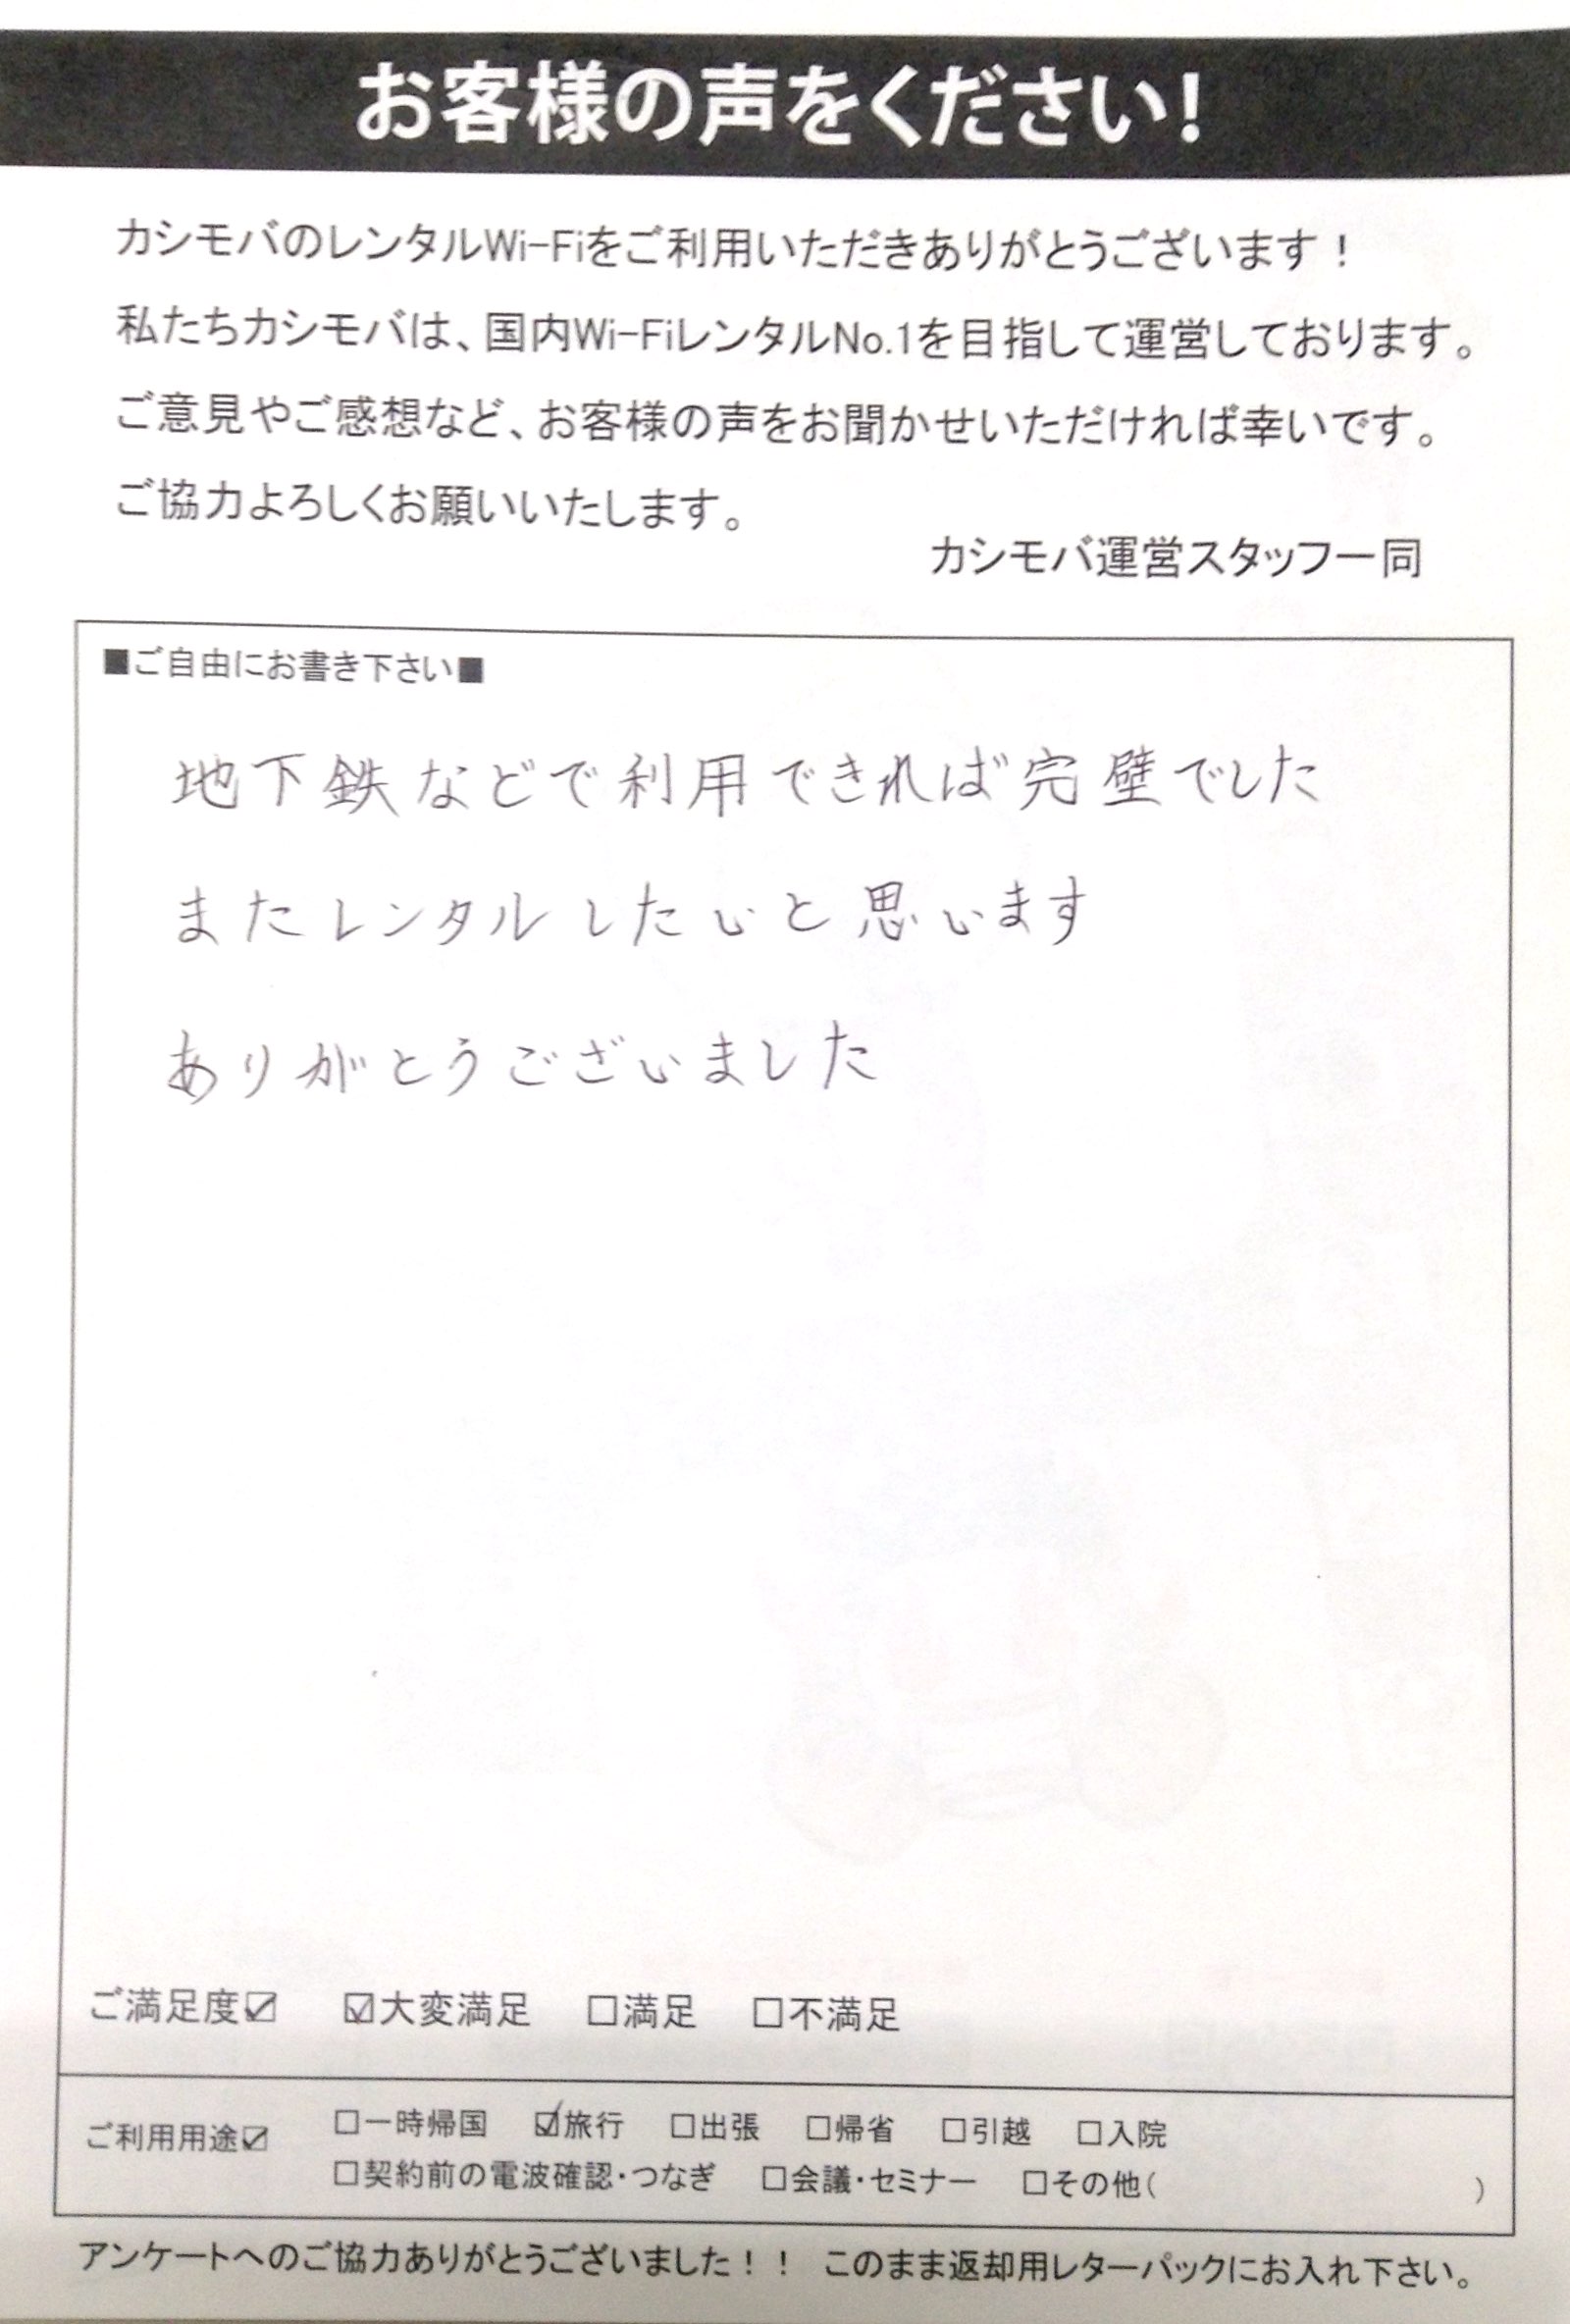 お客様の声をください!
カシモバのレンタルWi-Fiをご利用いただきありがとうございます！
私たちカシモバは、国内Wi-FiレンタルNo.1を目指して運営しております。
ご意見やご感想など、お客様の声をお聞かせいただければ幸いです。
ご協力よろしくお願いいたします。
カシモバ運営スタッフ一同
■ご自由にお書き下さい■
地下鉄などで利用できれば完璧でした
またレンタルしたいと思います
ありがとうございました
ご満足度☑ ☑大変満足 □満足 □不満足
ご利用用途☑ □一時帰国 ☑旅行 □出張 □帰省 □引越 □入院
□契約前の電波確認・つなぎ □会議・セミナー □その他( )
アンケートへのご協力ありがとうございました！！ このまま返却用レターパックにお入れ下さい。